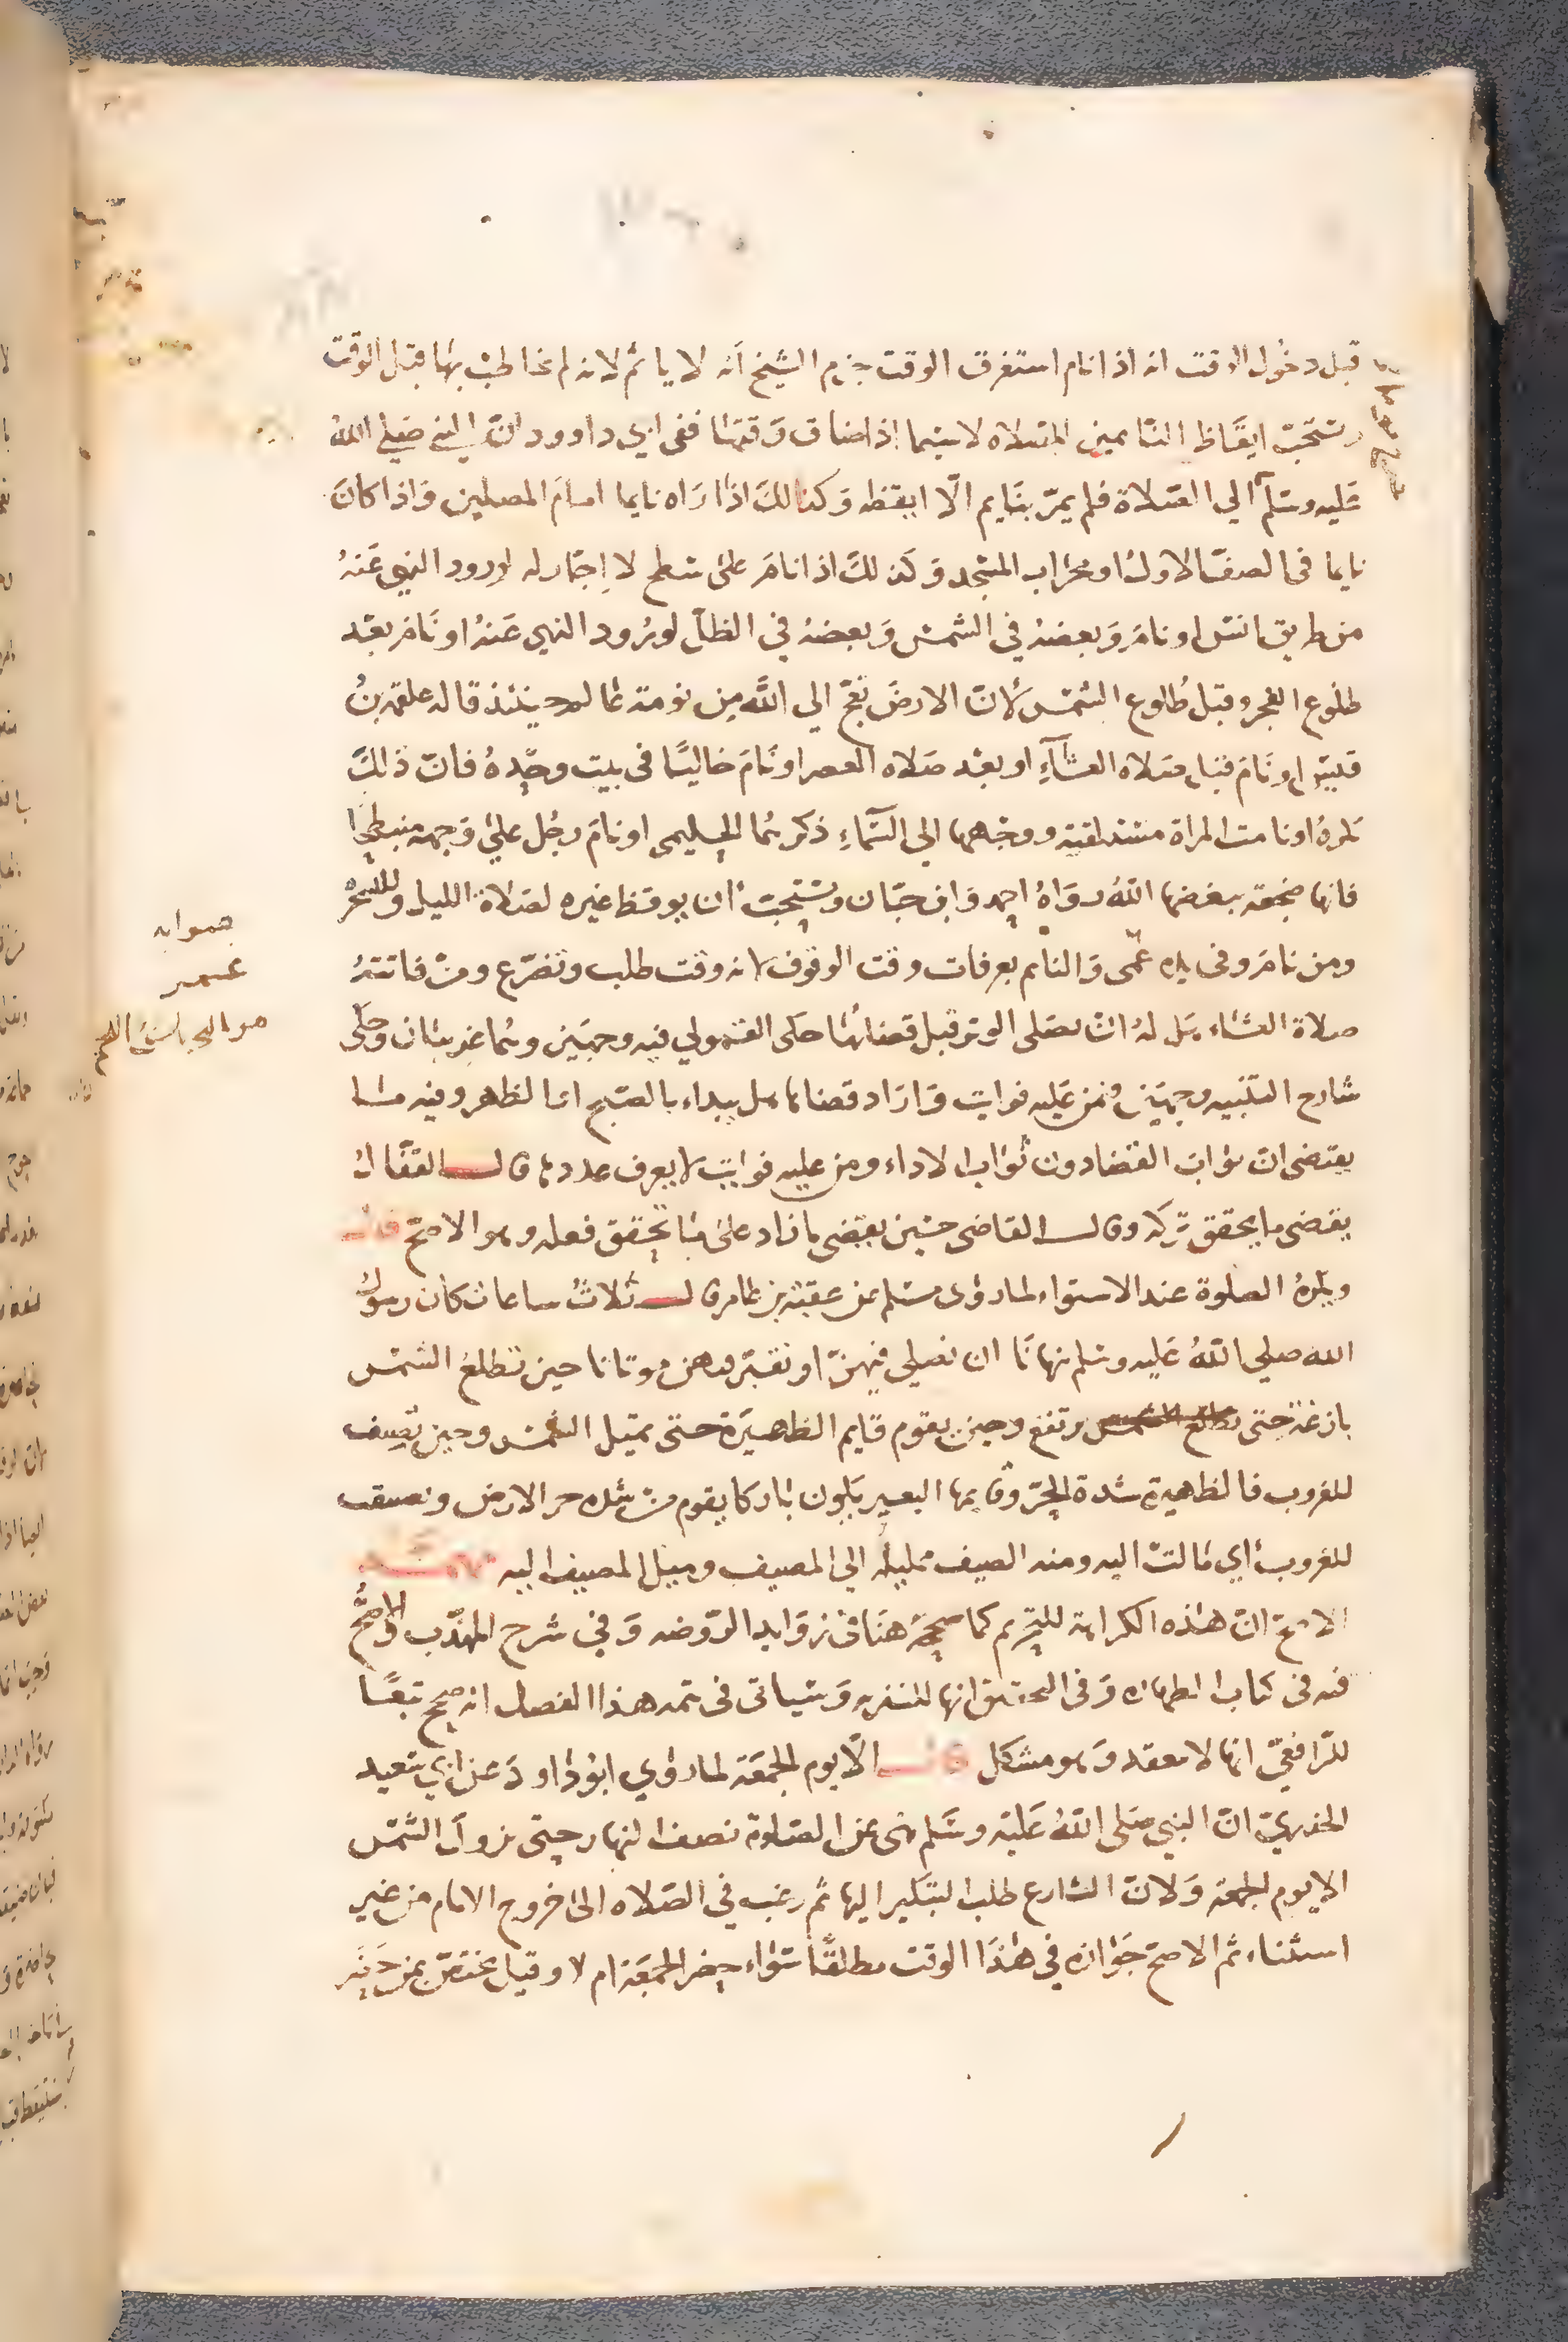 قبل دخول الوقت انه اذا نام استغرق الوقت جزم الشيخ انه لا ياثم لانه لم يخاطب بها قبل الوقت
ويستحب ايقاظ النايمين للصلاه لا سيما اذا ضاق وقتها ففي ابي داوود ان النبي صلي الله
عليه وسلم الي الصلاة فلم يمر بنايم الا ايقظه وكذلك اذا راه نايما امام المصلين واذا كان
نايما في الصف الاول او محراب المسجد وكذلك اذا نام على سطح لا اجار له لورود النهي عنه
من طريق انس او نام وبعضه في الشمس وبعضه في الظل لورود النهي عنه او نام بعد
طلوع الفجر وقبل طلوع الشمس لان الارض تعج الي الله من نومة عالم حينئذ قاله علقمه بن
قيس او نام قبل صلاه العشاء او بعد صلاه العصر او نام خاليا في بيت وحده فان ذلك
يكره او نامت المراة مستلقيه ووجهها الي السماء ذكرهما الحليمي او نام رجل علي وجهه منبطحا
فانها ضجعة يبغضها الله رواه احمد وابن حبان ويستحب ان يوقظ غيره لصلاة الليل وللسحر
ومن نام وفي يده غمر والنايم بعرفات وقت الوقوف لانه وقت طلب وتضرع ومن فاتته
صلاة العشاء هل له ان يصلى الوتر قبل قضائها حكى القمولي فيه وجهين وهما غريبان وحكى
شارح التنبيه وجهين فيمن عليه فوايت واراد قضاها هل يبداء بالصبح او الظهر وفيه ما
يقتضى ان ثواب القضا دون ثواب الاداء ومن عليه فوايت لا يعرف عددها قال القفال
يقضى ما يحقق تركه وقال القاضي حسين يقضى ما زاد على ما تحقق فعله وهو الاصح قال
ويكره الصلوة عند الاستواء لما روى مسلم عن عقبة بن عامر قال ثلاث ساعات كان رسول
الله صلي الله عليه وسلم نهانا ان نصلي فيهن او نقبر فيهن موتانا حين تطلع الشمس
بازغة حتى ترتفع وحين يقوم قايم الظهيرة حتى تميل الشمس وحين تضيف
للغروب فالظهيرة شدة الحر وقايمها البعير يكون باركا يقوم من شده حر الارض وتضيف
للغروب اي مالت اليه ومنه الضيف لميله الي المضيف وميل المضيف اليه
الاصح ان هذه الكراهة للتحريم كما صححه هنا في زوايد الروضه وفي شرح المهذب والاصح
فيه في كتاب الطهاره وفي التحقيق انها للتنزيه وسياتى في تتمه هذا الفصل انه صحح تبعا
للرافعي انها لا تنعقد وهو مشكل قال الا يوم الجمعة لما روي ابو داود عن ابي سعيد
الخدري ان النبي صلى الله عليه وسلم نهى عن الصلوة نصف النهار حتى تزول الشمس
الا يوم الجمعة ولان الشارع طلب التبكير اليها ثم رغب في الصلاه الى خروج الامام من غير
استثناء ثم الاصح جوازه في هذا الوقت مطلقا سواء حضر الجمعة ام لا وقيل يختص بمن حضر
صوابه
غمر
هو اللحم